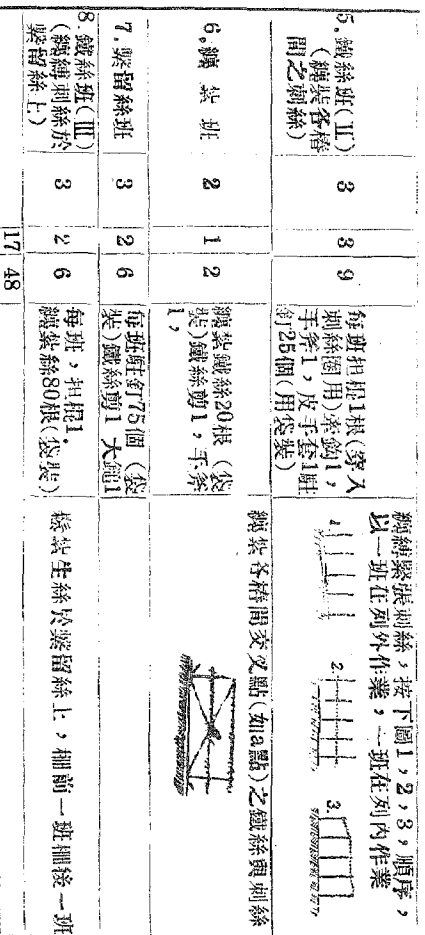 5. 鐵絲班(II)
(纏裝各樁
間之刺絲)
3
3
9
每班担棍1根(穿入
刺絲圈用)牽鈎1,
手斧1,皮手套1駐
釘25個(用袋裝)
纏縛緊張刺絲,按下圖1,2,3,順序,
以一班在列外作業,一班在列內作業
1.
2.
3.
6. 纏紮班
2
1
2
纏紮鐵絲20根(袋
裝)鐵絲剪1,手斧
1,
纏紮各樁間交叉點(如a點)之鐵絲與刺絲
7. 繫留絲班
3
2
6
每班駐釘75個(袋
裝)鐵絲剪1大鎚1
8. 鐵絲班(III)
(纏縛刺絲於
繫留絲上)
3
2
6
每班,担棍1.
纏紮絲80根(袋裝)
紮生絲於繫留絲上,柵前一班柵後一班
17
48